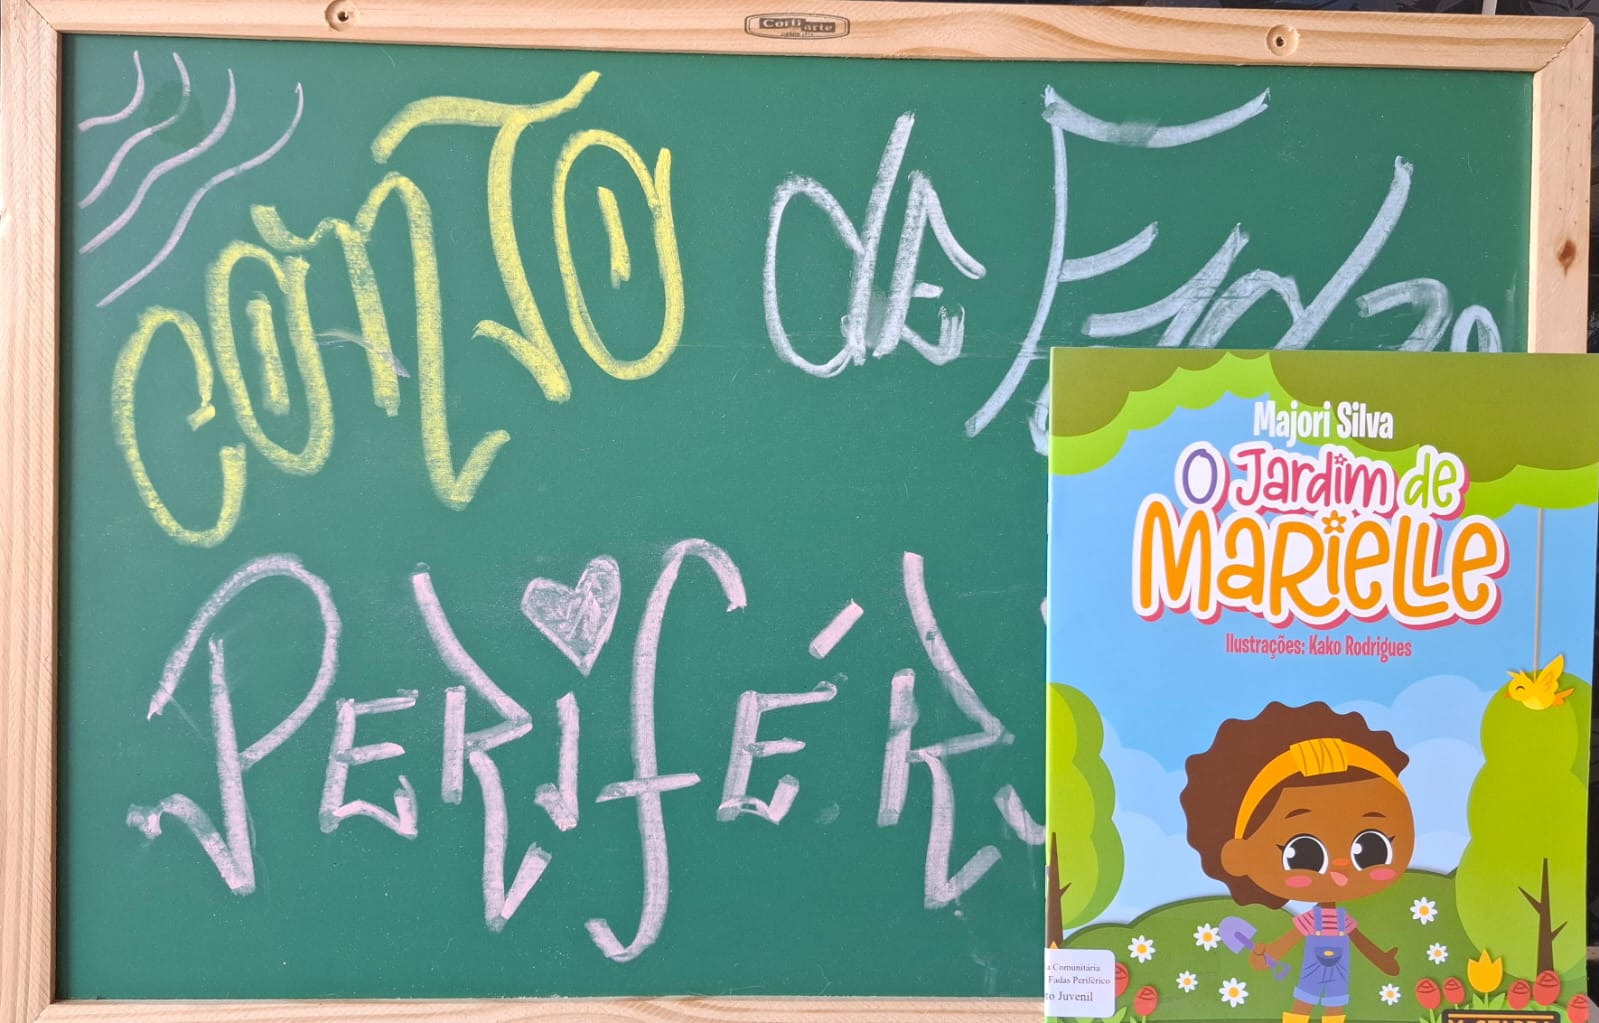 Corti arte
CONTO de Fadas
PERiFÉRi
Majori Silva
O Jardim de
MARIELLE
Ilustrações: Kako Rodrigues
a Comunitária
Fadas Periférico
to Juvenil